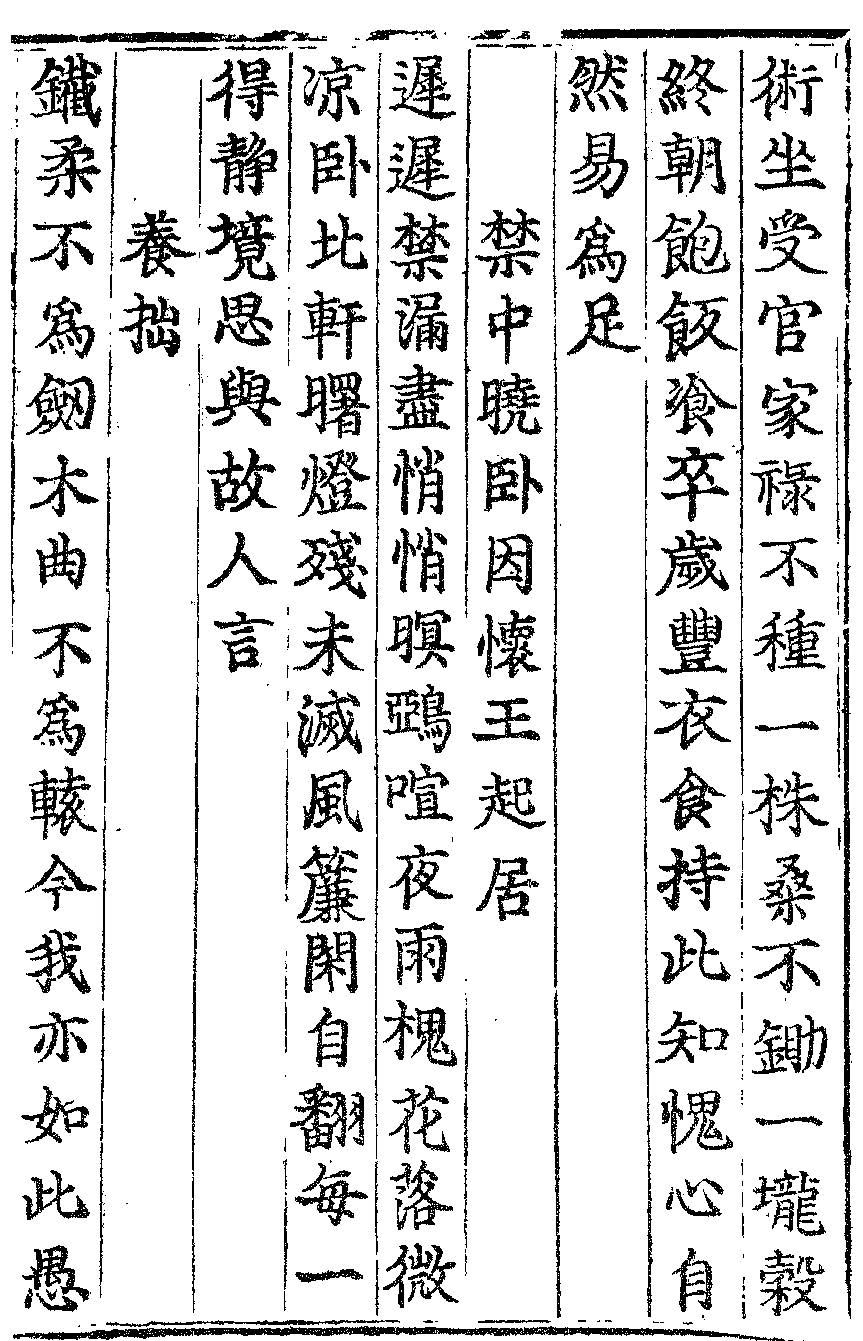 術坐受官家祿不種一株桑不鋤一壠榖
終朝飽飯飡卒歲豐衣食持此知愧心自
然易爲足
禁中曉卧因懷王起居
遲遲禁漏盡悄悄暝鵶喧夜雨槐花落微
凉卧北軒曙燈殘未滅風簾閑自翻每一
得靜境思與故人言
養拙
鐵柔不爲劒木曲不爲轅今我亦如此愚